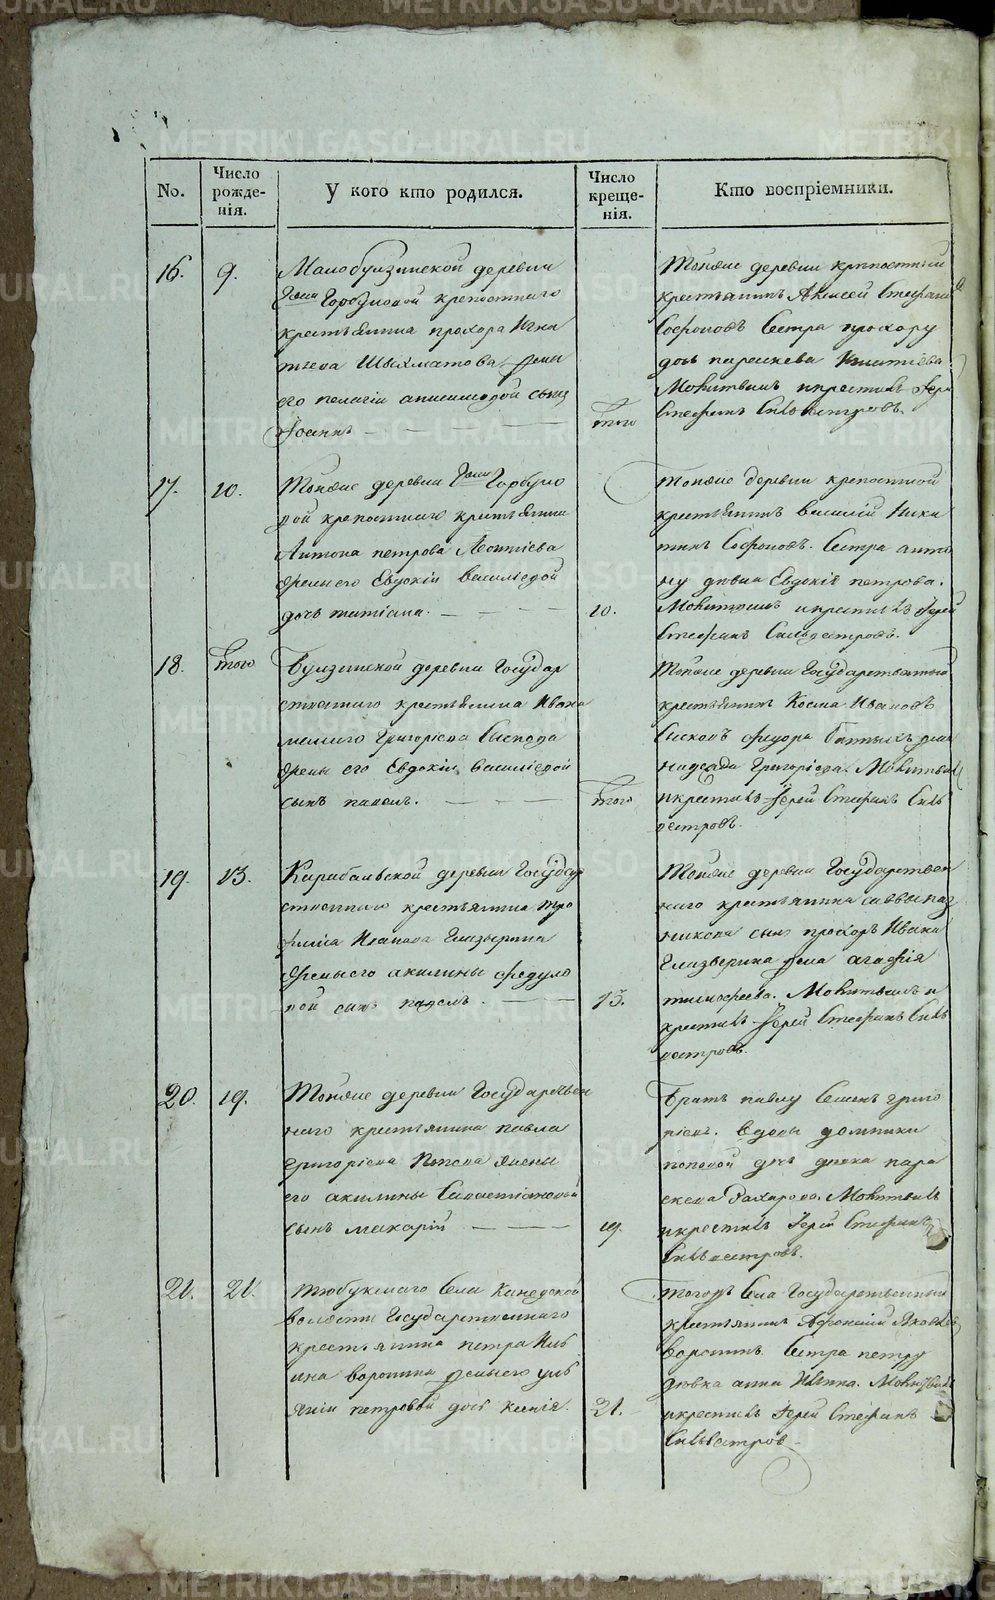 METRIKI.GASO-URAL.RU
No.
Число рожденія.
У кого кто родился.
Число крещенія.
Кто воспріемники.
16.
9.
Малобулзинской деревни
крепостнаго
крестьянина прохора Игна
тьева Шахматова жены
его пелагіи сынъ
Іоаннъ
того
Тойже деревни крѣпостный
крестьянинъ Алексей Стефано
Софоновъ Сестра прохору
дочь параскева Игнатіева
Молитвилъ икрестилъ Іерей
Стефанъ Сильвестровъ.
17.
10.
Тойже деревни Горбуно
вой крепостнаго крестьянина
Антона петрова Леонтіева
жены его Евдокіи Василіевой
дочь татіана.
10.
Тойже деревни крепостной
крестьянинъ василій Ники
тинъ Софоновъ. Сестра анто
ну девка Евдокія петрова.
Молитвилъ икрестилъ Іерей
Стефанъ Сильвестровъ.
18.
того
Булзинской деревни Государ
ственнаго крестьянина Ивана
Григоріева
жены его Евдокіи василіевой
сынъ павелъ.
того
Тойже деревни Государственный
крестьянинъ Косма Ивановъ
федора
Григоріева. Молитвилъ
икрестилъ Іерей Стефанъ Силь
вестровъ.
19.
13.
Карабальской деревни Государ
ственнаго крестьянина Тро
фима Иванова Глазырина
жены его акилины федуло
вой сынъ павелъ.
13.
Тойже деревни Государствен
наго крестьянина саввы
сынъ прохоръ Ивана
Глазырина жена агафія
тимофеева. Молитвилъ и
крестилъ Іерей Стефанъ Силь
вестровъ.
20.
19.
Тойже деревни Государствен
наго крестьянина павла
григоріева попова жены
его акилины Савастіановой
сынъ макарій
19.
Братъ павлу Семенъ григо
ріевъ. вдовы домники
поповой дочь девка пара
скева Захарова. Молитвилъ
икрестилъ Іерей Стефанъ
Сильвестровъ.
21.
21.
Тюбукскаго Села
волости Государственнаго
крестьянина петра Иль
ина воронина жены его уль
яніи петровой дочь ксенія.
21.
Тогожъ Села Государственный
крестьянинъ Афонасій Яковлевъ
воронинъ. Сестра петру
девка анна Ильина. Молитвилъ
икрестилъ Іерей Стефанъ
Сильвестров